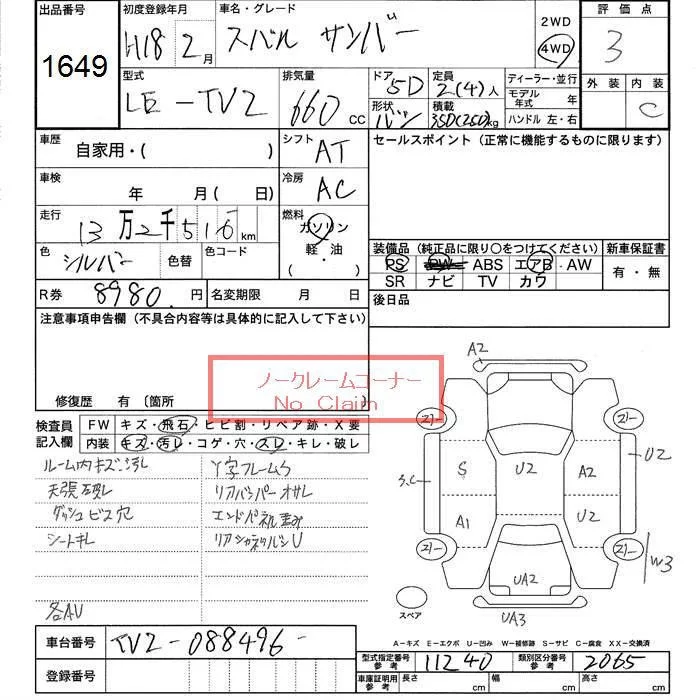 出品番号 初度登録年月 車名・グレード 2WD 4WD 評価点
1649 H18 2月 スバル サンバー 3
型式 排気量 ドア 5D 定員 2(4)人 ディーラー・並行 外装 内装
LE-TV2 660 CC 形状 バン 積載 350(250)kg モデル年式 年 ハンドル 左・右 C
車歴 自家用・( ) シフト AT セールスポイント (正常に機能するものに限ります)
車検 年 月(日) 冷房 AC
走行 13万2千516km 燃料 ガソリン 軽・油 ( ・ )
色 シルバー 色替 色コード
装備品 (純正品に限り○をつけてください) 新車保証書
PS PW ABS エアB AW 有・無
SR ナビ TV カワ
R券 8980円 名変期限 月 日 後日品
注意事項申告欄 (不具合内容等は具体的に記入して下さい)
ノークレームコーナー
No Claim
修復歴 有 (箇所
検査員記入欄 FW キズ・飛石・ヒビ割・リペア跡・X要
内装 キズ・汚レ・コゲ・穴・スレ・キレ・破レ
ルーム内キズ汚レ
天張破レ リアバンパーオサレ
ダッシュビス穴 エンドパネル歪み
シートキレ
各AU
A2
S U2 A2 U2
A1 U2
W3
UA2
スペア
UA3
A-キズ E-エクボ U-凹み W-補修跡 S-サビ C-腐食 XX-交換済
車台番号 TV2-088496-
登録番号
型式指定番号 参考 11240 類別区分番号 参考 2065
車庫証明用 参考 長さ cm 幅 cm 高さ cm